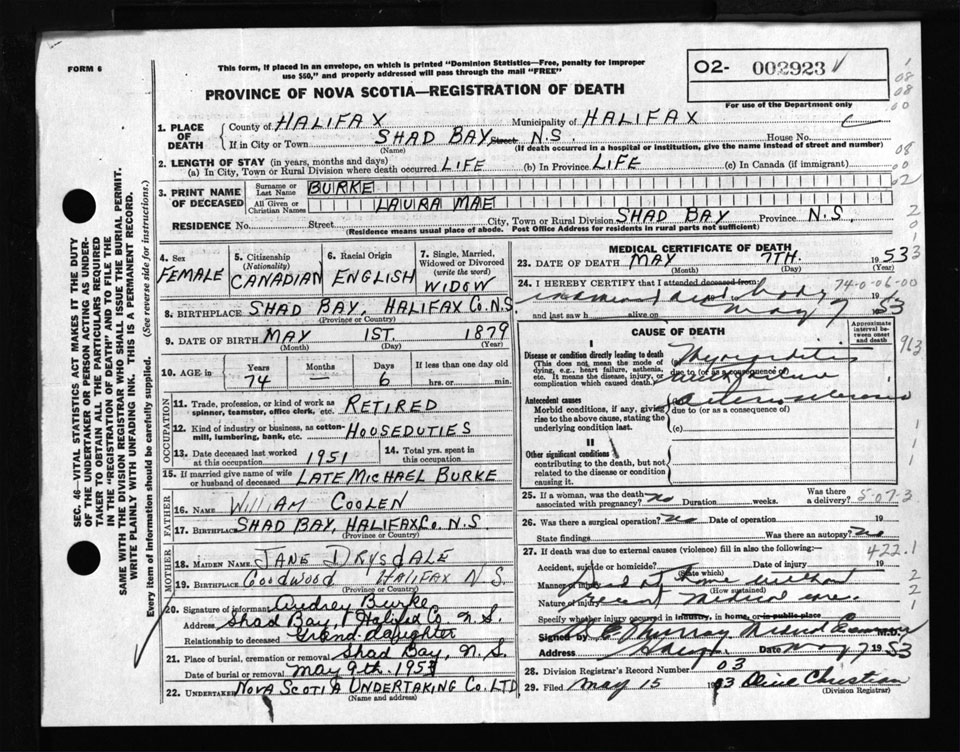 FORM 6
This form, if placed in an envelope, on which is printed "Dominion Statistics—Free, penalty for improper
use $50," and properly addressed will pass through the mail "FREE"
O2- 002923
For use of the Department only
PROVINCE OF NOVA SCOTIA—REGISTRATION OF DEATH
1. PLACE OF DEATH
County of HALIFAX Municipality of HALIFAX
If in City or Town SHAD BAY Street N.S. House No.
(Name) (If death occurred in a hospital or institution, give the name instead of street and number)
2. LENGTH OF STAY (in years, months and days)
(a) In City, Town or Rural Division where death occurred LIFE (b) In Province LIFE (c) In Canada (if immigrant)
3. PRINT NAME OF DECEASED
Surname or Last Name BURKE
All Given or Christian Names LAURA MAE
RESIDENCE No. Street City, Town or Rural Division SHAD BAY Province N.S.
(Residence means usual place of abode. Post Office Address for residents in rural parts not sufficient)
4. Sex FEMALE
5. Citizenship (Nationality) CANADIAN
6. Racial Origin ENGLISH
7. Single, Married, Widowed or Divorced (write the word) WIDOW
8. BIRTHPLACE SHAD BAY, HALIFAX Co. N.S.
(Province or Country)
9. DATE OF BIRTH MAY 1ST. 1879
(Month) (Day) (Year)
10. AGE in Years 74 Months — Days 6 If less than one day old hrs. or min.
OCCUPATION
11. Trade, profession, or kind of work as spinner, teamster, office clerk, etc. RETIRED
12. Kind of industry or business, as cotton-mill, lumbering, bank, etc. HOUSEDUTIES
13. Date deceased last worked at this occupation 1951
14. Total yrs. spent in this occupation
15. If married give name of wife or husband of deceased LATE MICHAEL BURKE
FATHER
16. NAME WILLIAM COOLEN
17. BIRTHPLACE SHAD BAY, HALIFAX Co. N.S.
(Province or Country)
MOTHER
18. MAIDEN NAME JANE DRYSDALE
19. BIRTHPLACE GOODWOOD HALIFAX N.S.
(Province or Country)
20. Signature of informant Audrey Burke
Address Shad Bay, Halifax Co. N.S.
Relationship to deceased Grand-daughter
21. Place of burial, cremation or removal Shad Bay, N.S.
Date of burial or removal May 9th. 1953
22. UNDERTAKER NOVA SCOTIA UNDERTAKING CO. LTD
(Name and address)
MEDICAL CERTIFICATE OF DEATH
23. DATE OF DEATH MAY 7TH. 1953
(Month) (Day) (Year)
24. I HEREBY CERTIFY that I attended deceased from:
examined dead body 19
and last saw h alive on May 7 1953
74-0-06-00
CAUSE OF DEATH
Approximate interval between onset and death
I
Disease or condition directly leading to death
(This does not mean the mode of dying, e.g., heart failure, asthenia, etc. It means the disease, injury, or complication which caused death.)
(a) Myocarditis
due to (or as a consequence of)
Antecedent causes
Morbid conditions, if any, giving rise to the above cause, stating the underlying condition last.
Arteriosclerosis
due to (or as a consequence of)
(c)
II
Other significant conditions
contributing to the death, but not related to the disease or condition causing it.
25. If a woman, was the death associated with pregnancy? no Duration weeks. Was there a delivery?
5-07-3
26. Was there a surgical operation? no Date of operation 19
State findings Was there an autopsy? no
27. If death was due to external causes (violence) fill in also the following:—
422.1
Accident, suicide or homicide? Date of injury 19
(State which)
Manner of injury died at home without
(How sustained)
Nature of injury recent medical care.
Specify whether injury occurred in industry, in home, or in public place
Signed by Murray Medical Examiner M.D.
Address Date May 7 1953
28. Division Registrar's Record Number 03
29. Filed May 15 1953 Olive Christian
(Division Registrar)
SEC. 46—VITAL STATISTICS ACT MAKES IT THE DUTY
OF THE UNDERTAKER OR PERSON ACTING AS UNDER-
TAKER TO OBTAIN ALL THE PARTICULARS REQUIRED
IN THE "REGISTRATION OF DEATH" AND TO FILE THE
SAME WITH THE DIVISION REGISTRAR WHO SHALL ISSUE THE BURIAL PERMIT.
WRITE PLAINLY WITH UNFADING INK. THIS IS A PERMANENT RECORD.
Every item of information should be carefully supplied. (See reverse side for instructions.)